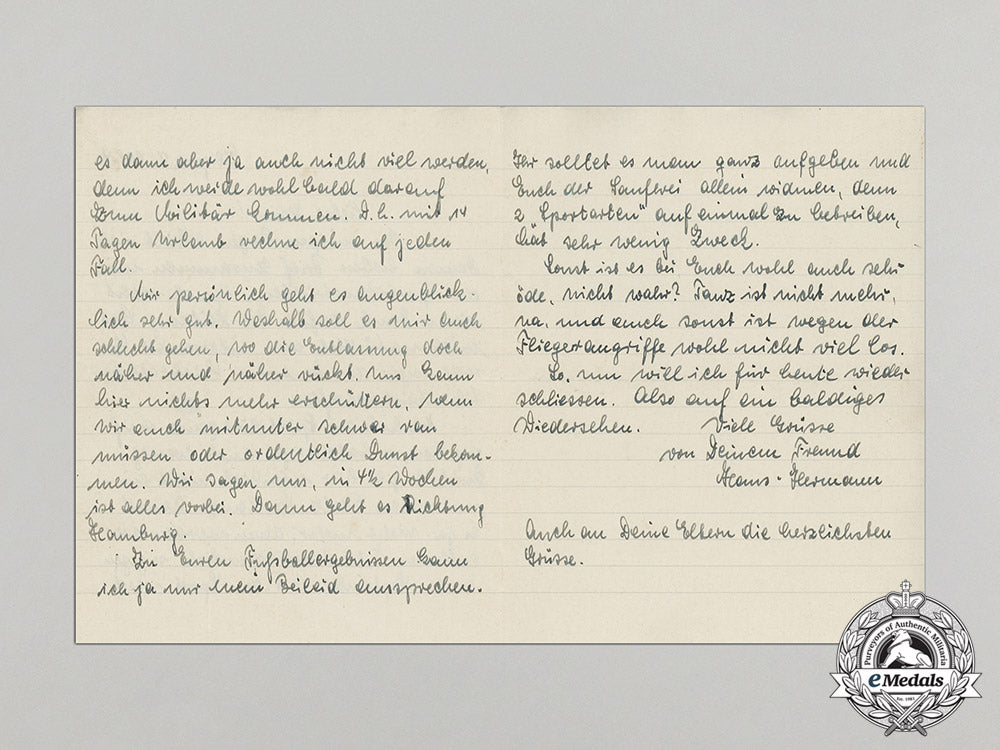 es dann aber ja auch nicht viel werden,
denn ich werde wohl bald darauf
zum Militär kommen. D.h. mit 14
Tagen Urlaub rechne ich auf jeden
Fall.
Mir persönlich geht es augenblick-
lich sehr gut. Weshalb soll es mir auch
schlecht gehen, wo die Entlassung doch
näher und näher rückt. Uns kann
hier nichts mehr erschüttern, wenn
wir auch mitunter schwer ran
müssen oder ordentlich Dunst bekom-
men. Wir sagen uns, in 4½ Wochen
ist alles vorbei. Dann geht es Richtung
Hamburg.
Zu Euren Fußballergebnissen kann
ich ja nur mein Beileid aussprechen.
Ihr solltet es man ganz aufgeben und
Euch der Sauferei allein widmen, denn
2 „Sportarten" auf einmal zu betreiben,
hat sehr wenig Zweck.
Sonst ist es bei Euch wohl auch sehr
öde, nicht wahr? Tanz ist nicht mehr,
na, und auch sonst ist wegen der
Fliegerangriffe wohl nicht viel los.
So, nun will ich für heute wieder
schliessen. Also auf ein baldiges
Wiedersehen. Viele Grüsse
von Deinem Freund
Hans-Hermann
Auch an Deine Eltern die herzlichsten
Grüsse.
Purveyors of Authentic Militaria
eMedals
Est. 1985